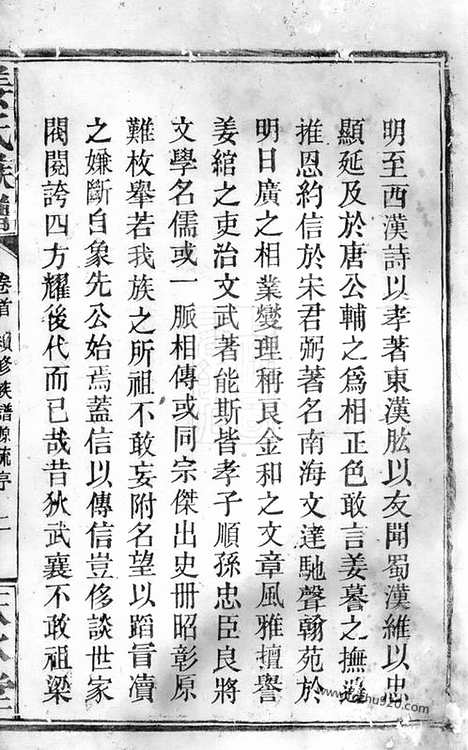 明至西漢詩以孝著東漢肱以友聞蜀漢維以忠
顯延及於唐公輔之爲相正色敢言姜謩之撫邊
推恩約信於宋君弼著名南海文達馳聲翰苑於
明日廣之相業燮理稱良金和之文章風雅擅譽
姜綰之吏治文武著能斯皆孝子順孫忠臣良將
文學名儒或一脈相傳或同宗傑出史册昭彰原
難枚舉若我族之所祖不敢妄附名望以蹈冒瀆
之嫌斷自象先公始焉蓋信以傳信豈侈談世家
閥閱誇四方耀後代而已哉昔狄武襄不敢祖梁
姜氏族譜
卷首 續修族譜源流序 二